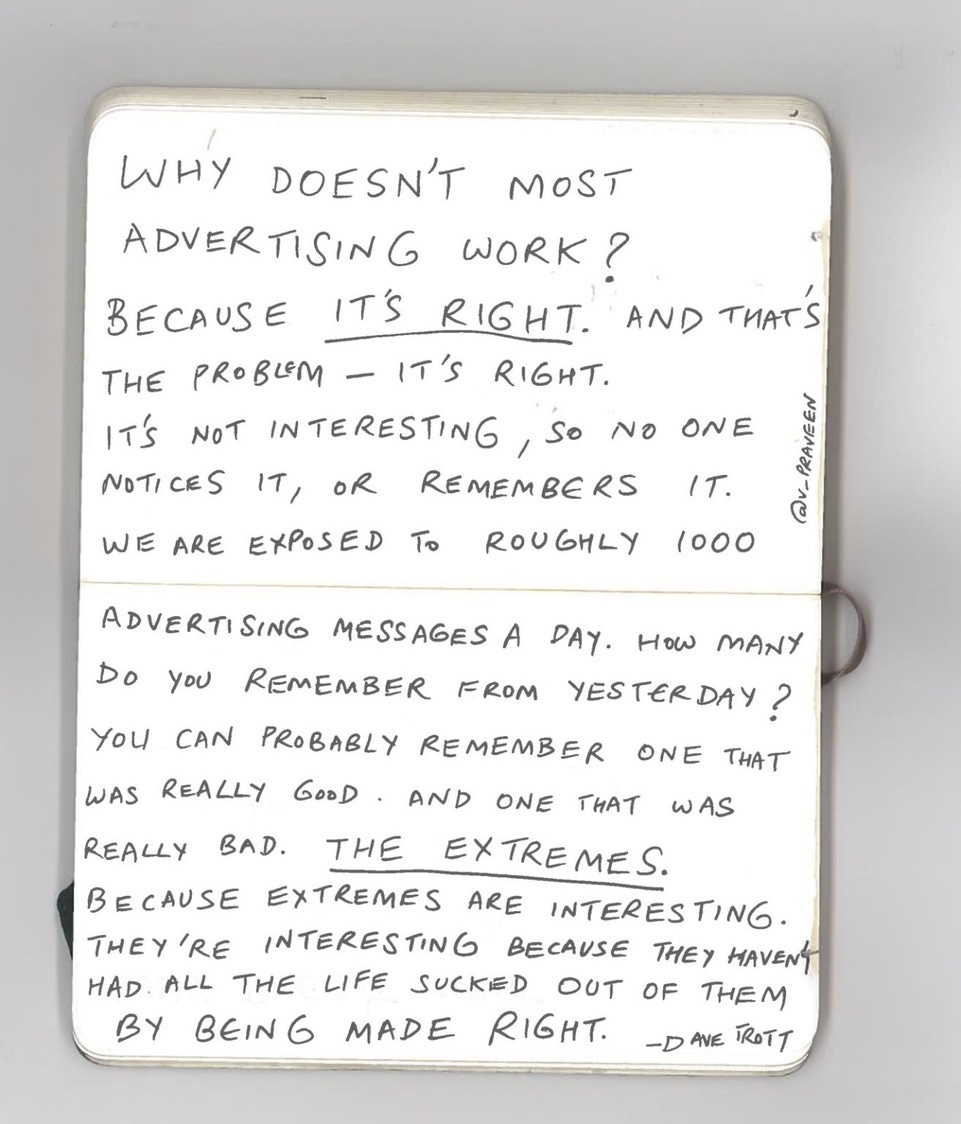 WHY DOESN'T MOST
ADVERTISING WORK?
BECAUSE IT'S RIGHT. AND THAT'S
THE PROBLEM – IT'S RIGHT.
IT'S NOT INTERESTING, SO NO ONE
NOTICES IT, OR REMEMBERS IT.
WE ARE EXPOSED TO ROUGHLY 1000
@v_PRAVEEN
ADVERTISING MESSAGES A DAY. HOW MANY
DO YOU REMEMBER FROM YESTERDAY?
YOU CAN PROBABLY REMEMBER ONE THAT
WAS REALLY GOOD. AND ONE THAT WAS
REALLY BAD. THE EXTREMES.
BECAUSE EXTREMES ARE INTERESTING.
THEY'RE INTERESTING BECAUSE THEY HAVEN'T
HAD ALL THE LIFE SUCKED OUT OF THEM
BY BEING MADE RIGHT. –DAVE TROTT